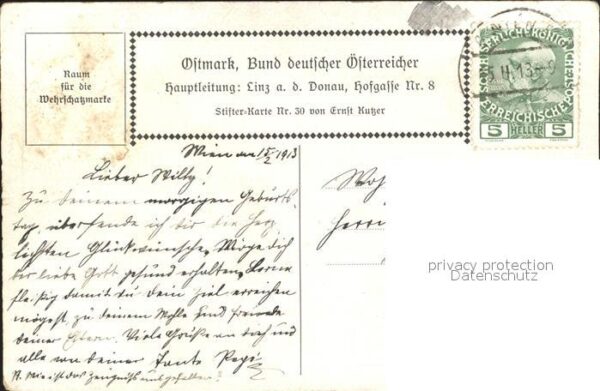 Raum
für die
Wehrschatzmarke
Ostmark, Bund deutscher Österreicher
Hauptleitung: Linz a. d. Donau, Hofgasse Nr. 8
Stifter-Karte Nr. 30 von Ernst Kutzer
KAIS. KÖNIGL.
ÖSTERREICHISCHE POST
5 HELLER 5
Wien am 15/2 1913
Lieber Willy!
Zu deinem morgigen Geburts-
tag, übersende ich dir die herz
lichsten Glückwünsche. Möge dich
der liebe Gott gesund erhalten. Lerne
fleißig damit du dein Ziel erreichen
mögest, zu deinem Wohle und Freude
deiner Eltern. Viele Grüße an dich und
alle von deiner Tante Pepi
N. Wie ist das Zeugniß ausgefallen?
Woh
Herrn
privacy protection
Datenschutz